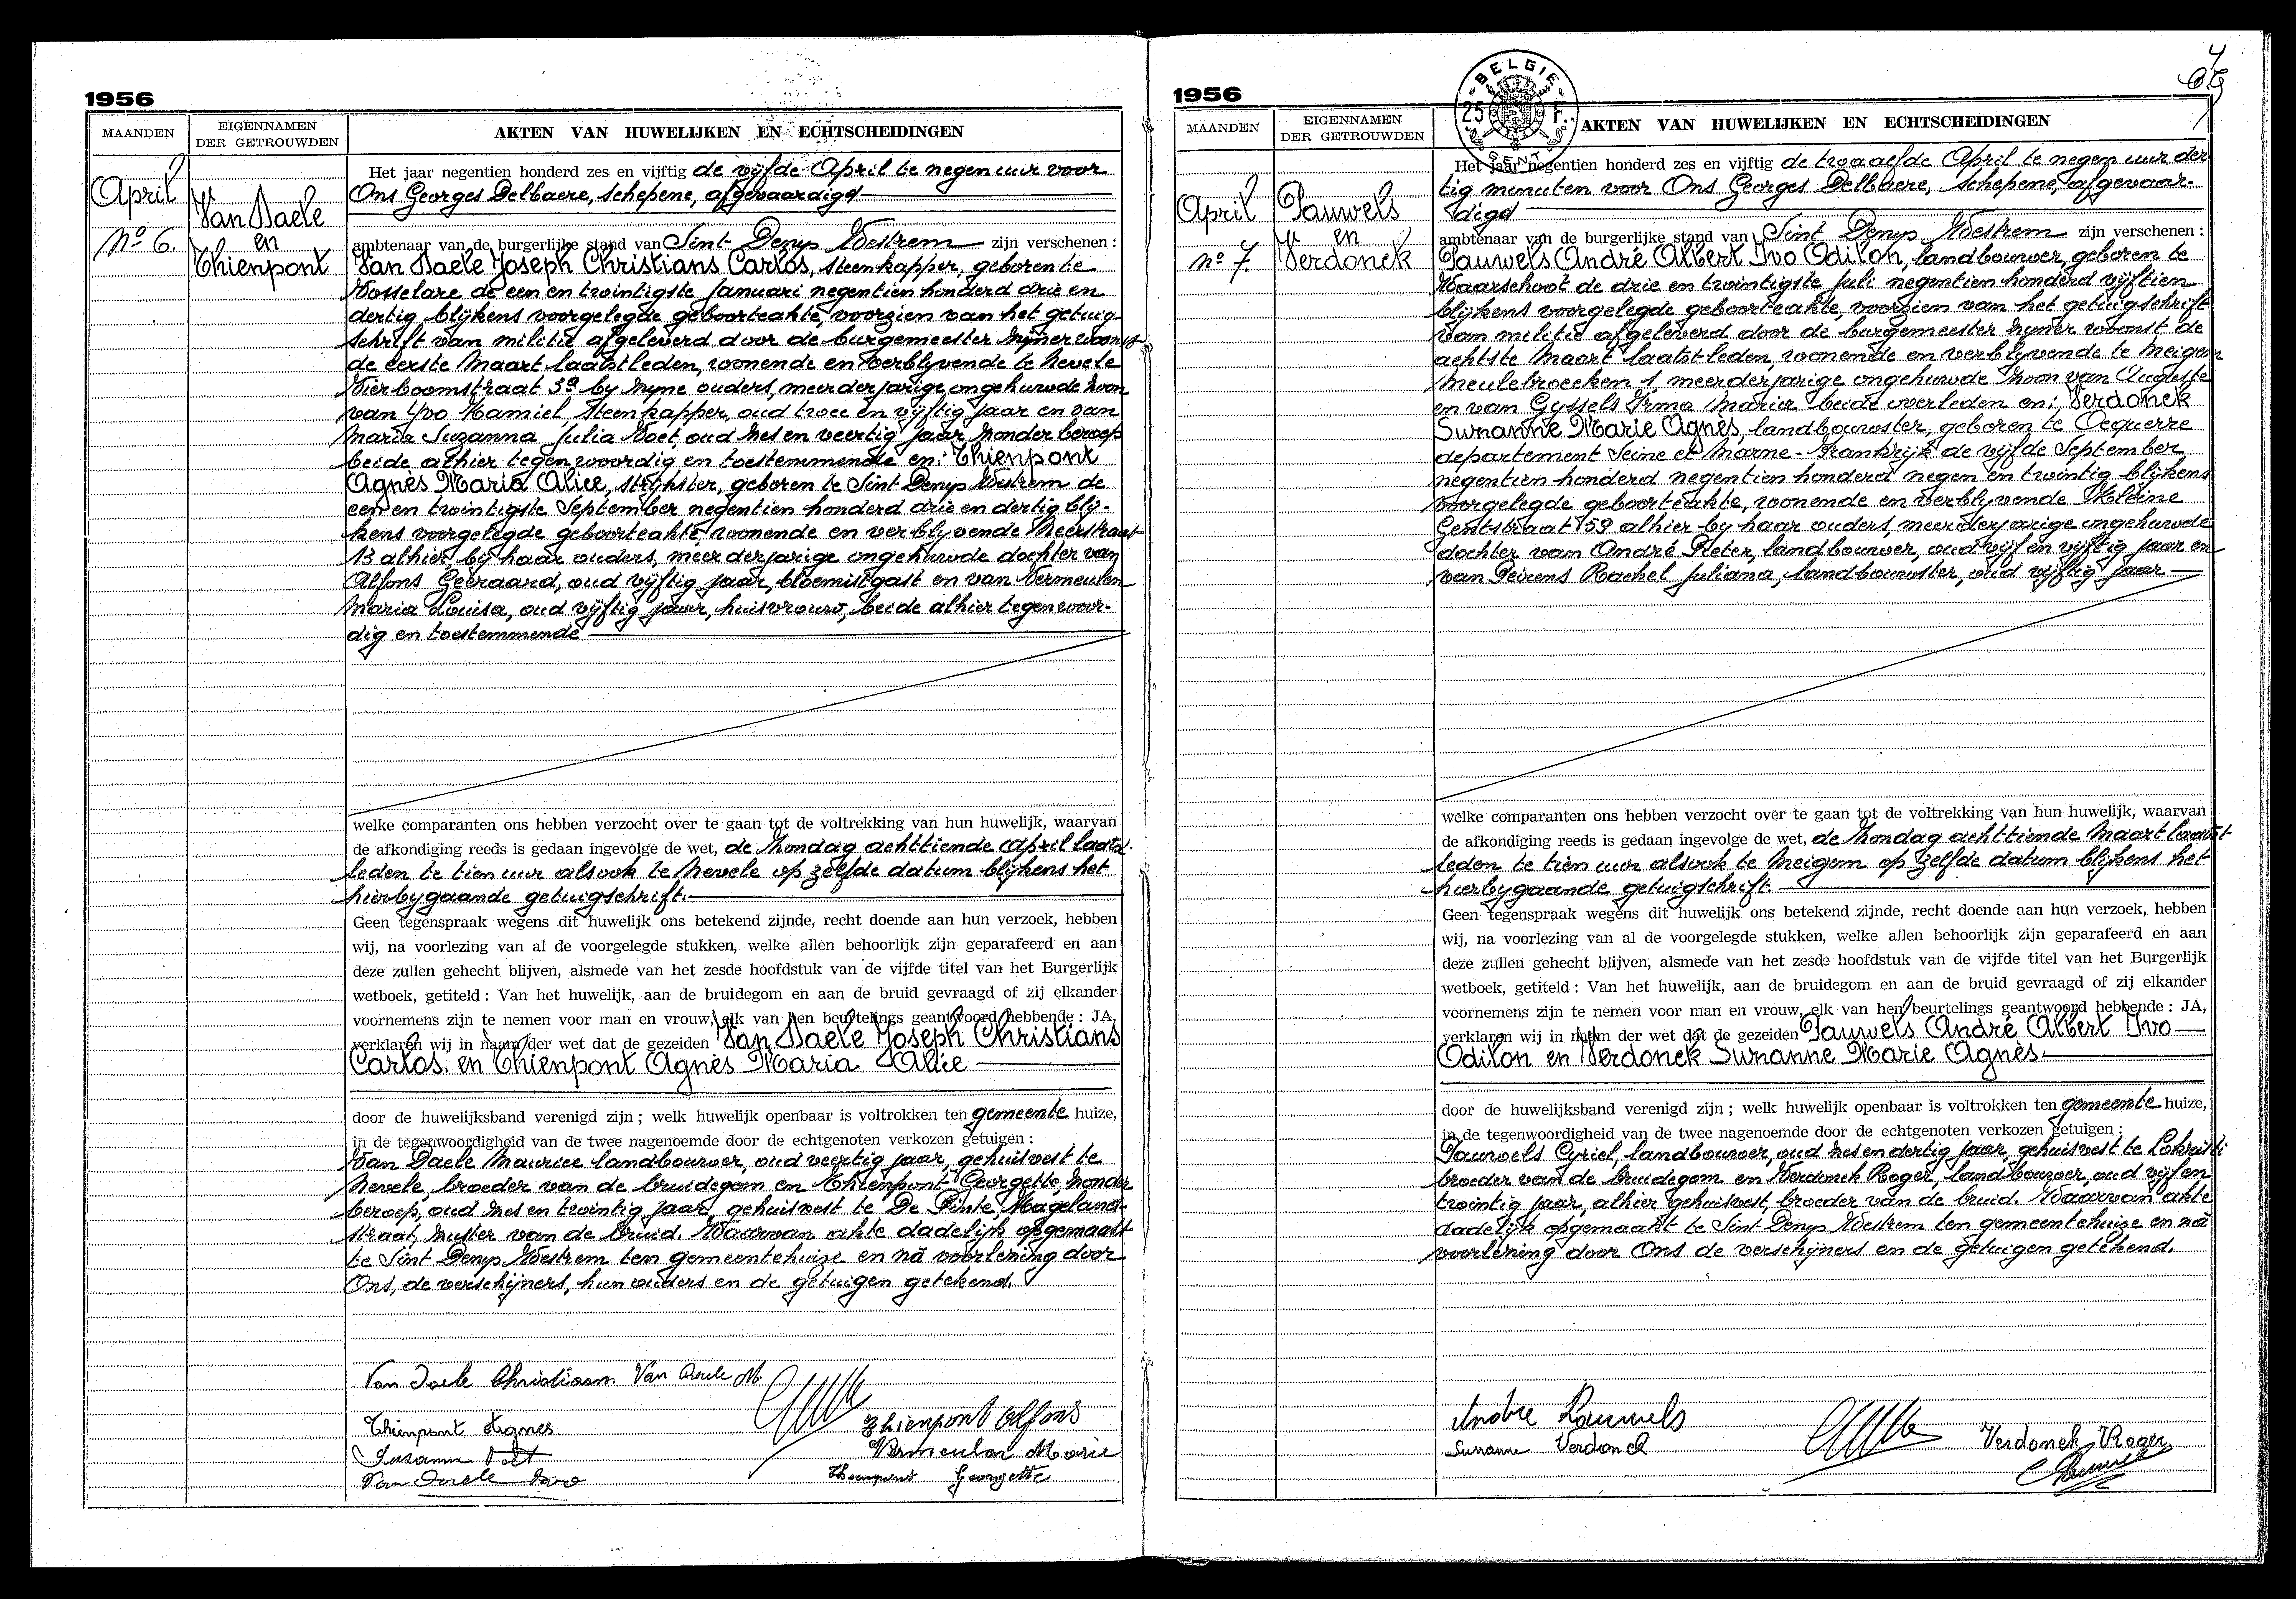 1956
MAANDEN
EIGENNAMEN
DER GETROUWDEN
AKTEN VAN HUWELIJKEN EN ECHTSCHEIDINGEN
April
No 6.
Van Daele
en
Thienpont
Het jaar negentien honderd zes en vijftig de vijfde April te negen uur voor
Ons Georges Delbaere, schepene, afgevaardigd
ambtenaar van de burgerlijke stand van Sint Denys Westrem zijn verschenen :
Van Daele Joseph Christians Carlos, steenkapper, geboren te
Vosselare de een en twintigste Januari negentien honderd drie en
dertig blijkens voorgelegde geboorteakte, voorzien van het getuig-
schrift van militie afgeleverd door de burgemeester zijner woonst
de eerste Maart laatstleden, wonende en verblyvende te Nevele
Vierboomstraat 3a by zyne ouders, meerderjarige ongehuwde zoon
van Yvo Kamiel, steenkapper, oud twee en vyftig jaar en van
Maria Suzanna Julia Voet, oud zes en veertig jaar, zonder beroep
beide alhier tegenwoordig en toestemmende en; Thienpont
Agnès Maria Alice, strijkster, geboren te Sint Denys Westrem de
een en twintigste September negentien honderd drie en dertig blij-
kens voorgelegde geboorteakte, wonende en verblyvende Meerstraat
13 alhier, bij haar ouders, meerderjarige ongehuwde dochter van
Alfons Geeraard, oud vijftig jaar, bloemistgast en van Vermeulen
Maria Louisa, oud vijftig jaar, huisvrouw, beide alhier tegenwoor-
dig en toestemmende
welke comparanten ons hebben verzocht over te gaan tot de voltrekking van hun huwelijk, waarvan
de afkondiging reeds is gedaan ingevolge de wet, de Zondag achttiende April laatst-
leden te tien uur alsook te Nevele op zelfde datum blijkens het
hierbygaande getuigschrift.
Geen tegenspraak wegens dit huwelijk ons betekend zijnde, recht doende aan hun verzoek, hebben
wij, na voorlezing van al de voorgelegde stukken, welke allen behoorlijk zijn geparafeerd en aan
deze zullen gehecht blijven, alsmede van het zesde hoofdstuk van de vijfde titel van het Burgerlijk
wetboek, getiteld : Van het huwelijk, aan de bruidegom en aan de bruid gevraagd of zij elkander
voornemens zijn te nemen voor man en vrouw, elk van hen beurtelings geantwoord hebbende : JA,
verklaren wij in naam der wet dat de gezeiden Van Daele Joseph Christians
Carlos. en Thienpont Agnès Maria Alice
door de huwelijksband verenigd zijn ; welk huwelijk openbaar is voltrokken ten gemeente huize,
in de tegenwoordigheid van de twee nagenoemde door de echtgenoten verkozen getuigen :
Van Daele Maurice landbouwer, oud veertig jaar, gehuisvest te
Nevele, broeder van de bruidegom en Thienpont Georgette, zonder
beroep, oud zes en twintig jaar, gehuisvest te De Pinte
straat, zuster van de bruid. Waarvan akte dadelijk opgemaakt
te Sint Denys Westrem ten gemeentehuize en nà voorlezing door
Ons, de verschijners, hun ouders en de getuigen getekend.
Van Daele Christiaan Van Daele M
Thienpont Agnes
Thienpont Alfons
Susanna Voet
Vermeulen Marie
Van Daele Ivo
Thienpont Georgette
1956
MAANDEN
EIGENNAMEN
DER GETROUWDEN
BELGIE
25 F.
AKTEN VAN HUWELIJKEN EN ECHTSCHEIDINGEN
4
April
no 7.
Pauwels
en
Verdonck
Het jaar negentien honderd zes en vijftig de twaalfde April te negen uur der
tig minuten voor Ons Georges Delbaere, schepene, afgevaar-
digd
ambtenaar van de burgerlijke stand van Sint Denys Westrem zijn verschenen :
Pauwels André Albert Ivo Odilon, landbouwer, geboren te
Waarschoot de drie en twintigste Juli negentien honderd vijftien
blijkens voorgelegde geboorteakte, voorzien van het getuigschrift
van militie afgeleverd door de burgemeester zyner woonst de
achtste Maart laatst-leden, wonende en verblyvende te Meigem
Meulebroecken 1, meerderjarige ongehuwde zoon van Auguste
en van Gyssels Irma Maria beide overleden en; Verdonck
Suzanne Marie Agnès, landbouwster, geboren te Ocquerre
departement Seine et Marne-Frankrijk de vijfde September
negentien honderd negentien honderd negen en twintig blijkens
voorgelegde geboorteakte, wonende en verblyvende Kleine
Gentstraat 159 alhier by haar ouders, meerderjarige ongehuwde
dochter van André Pieter, landbouwer, oud vijf en vijftig jaar en
van Peirens Rachel Juliana, landbouwster, oud vijftig jaar
welke comparanten ons hebben verzocht over te gaan tot de voltrekking van hun huwelijk, waarvan
de afkondiging reeds is gedaan ingevolge de wet, de Zondag achttiende Maart laatst-
leden te tien uur alsook te Meigem op zelfde datum blijkens het
hierbygaande getuigschrift.
Geen tegenspraak wegens dit huwelijk ons betekend zijnde, recht doende aan hun verzoek, hebben
wij, na voorlezing van al de voorgelegde stukken, welke allen behoorlijk zijn geparafeerd en aan
deze zullen gehecht blijven, alsmede van het zesde hoofdstuk van de vijfde titel van het Burgerlijk
wetboek, getiteld : Van het huwelijk, aan de bruidegom en aan de bruid gevraagd of zij elkander
voornemens zijn te nemen voor man en vrouw, elk van hen beurtelings geantwoord hebbende : JA,
verklaren wij in naam der wet dat de gezeiden Pauwels André Albert Ivo
Odilon en Verdonck Suzanne Marie Agnès.
door de huwelijksband verenigd zijn ; welk huwelijk openbaar is voltrokken ten gemeente huize,
in de tegenwoordigheid van de twee nagenoemde door de echtgenoten verkozen getuigen :
Pauwels Cyriel, landbouwer, oud zes en dertig jaar, gehuisvest te Lokristi
broeder van de bruidegom en Verdonck Roger, landbouwer, oud vijf en
twintig jaar, alhier gehuisvest, broeder van de bruid. Waarvan akte
dadelijk opgemaakt te Sint Denys Westrem ten gemeentehuize en nà
voorlezing door Ons de verschijners en de getuigen getekend.
Andre Pauwels
Suzanne Verdonck
Verdonck Roger
Pauwels